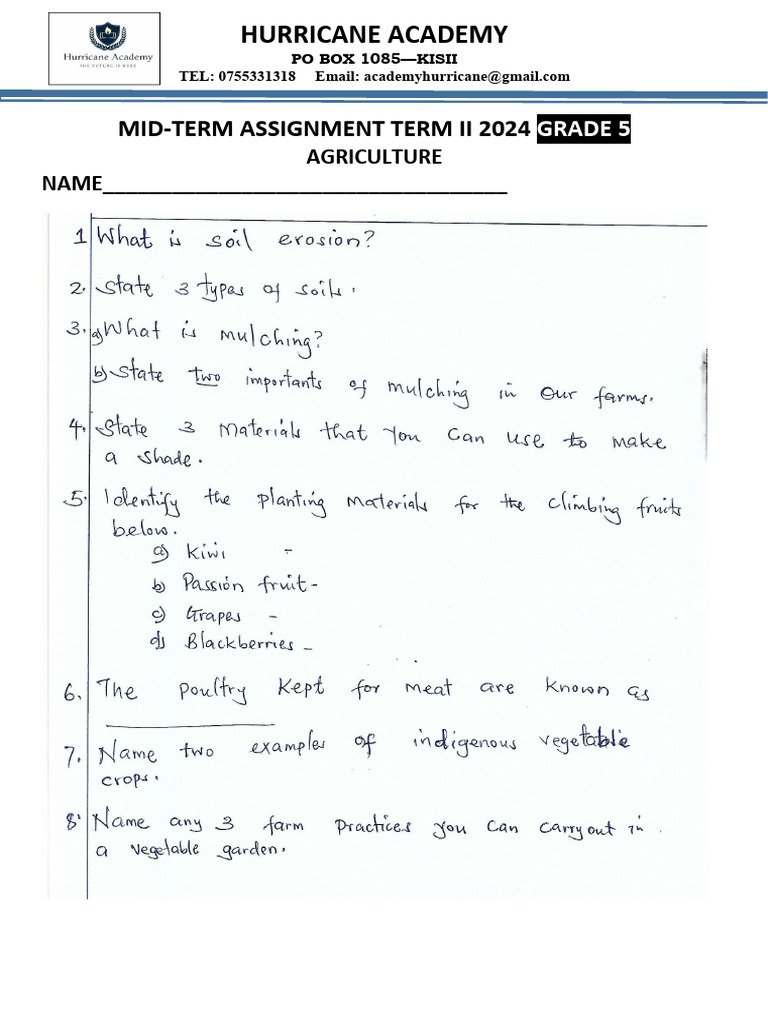 Hurricane Academy
THE FUTURE IS HERE
HURRICANE ACADEMY
PO BOX 1085—KISII
TEL: 0755331318 Email: academyhurricane@gmail.com
MID-TERM ASSIGNMENT TERM II 2024 GRADE 5
AGRICULTURE
NAME___________________________________
1 What is soil erosion?
2. State 3 types of soils.
3. a) What is mulching?
b) State two importants of mulching in our farms.
4. State 3 Materials that you can use to make
a shade.
5. Identify the planting materials for the climbing fruits
below.
a) Kiwi -
b) Passion fruit -
c) Grapes -
d) Blackberries -
6. The poultry kept for meat are known as
____________
7. Name two examples of indigenous vegetable
crops.
8. Name any 3 farm practices you can carryout in
a vegetable garden.